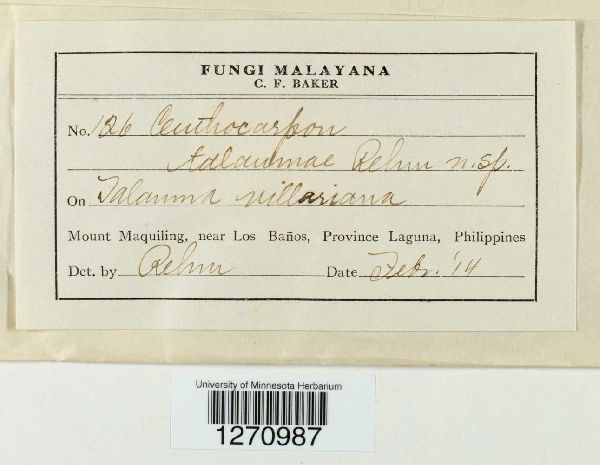 FUNGI MALAYANA
C. F. BAKER
No. 126 Ceuthocarpon
Talaumae Rehm n. sp.
On Talauma villariana
Mount Maquiling, near Los Baños, Province Laguna, Philippines
Det. by Rehm Date Febr. '14
University of Minnesota Herbarium
1270987